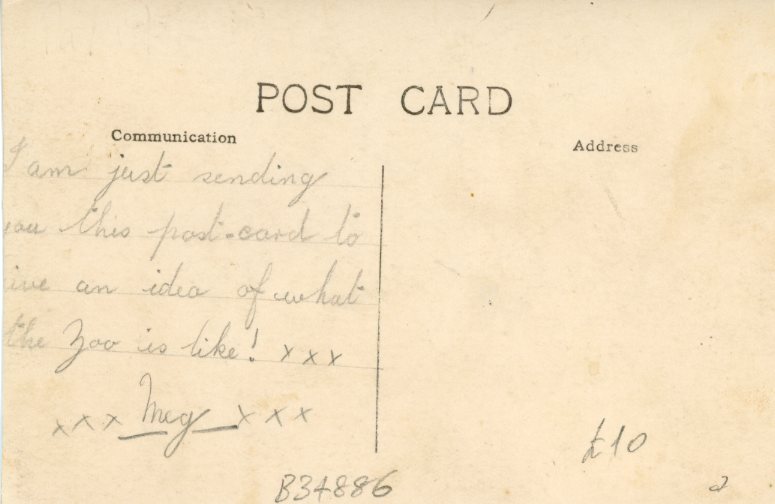 POST CARD
Communication
Address
I am just sending
you this post-card to
ive an idea of what
the Zoo is like! x x x
x x x Meg x x x
£10
B34886